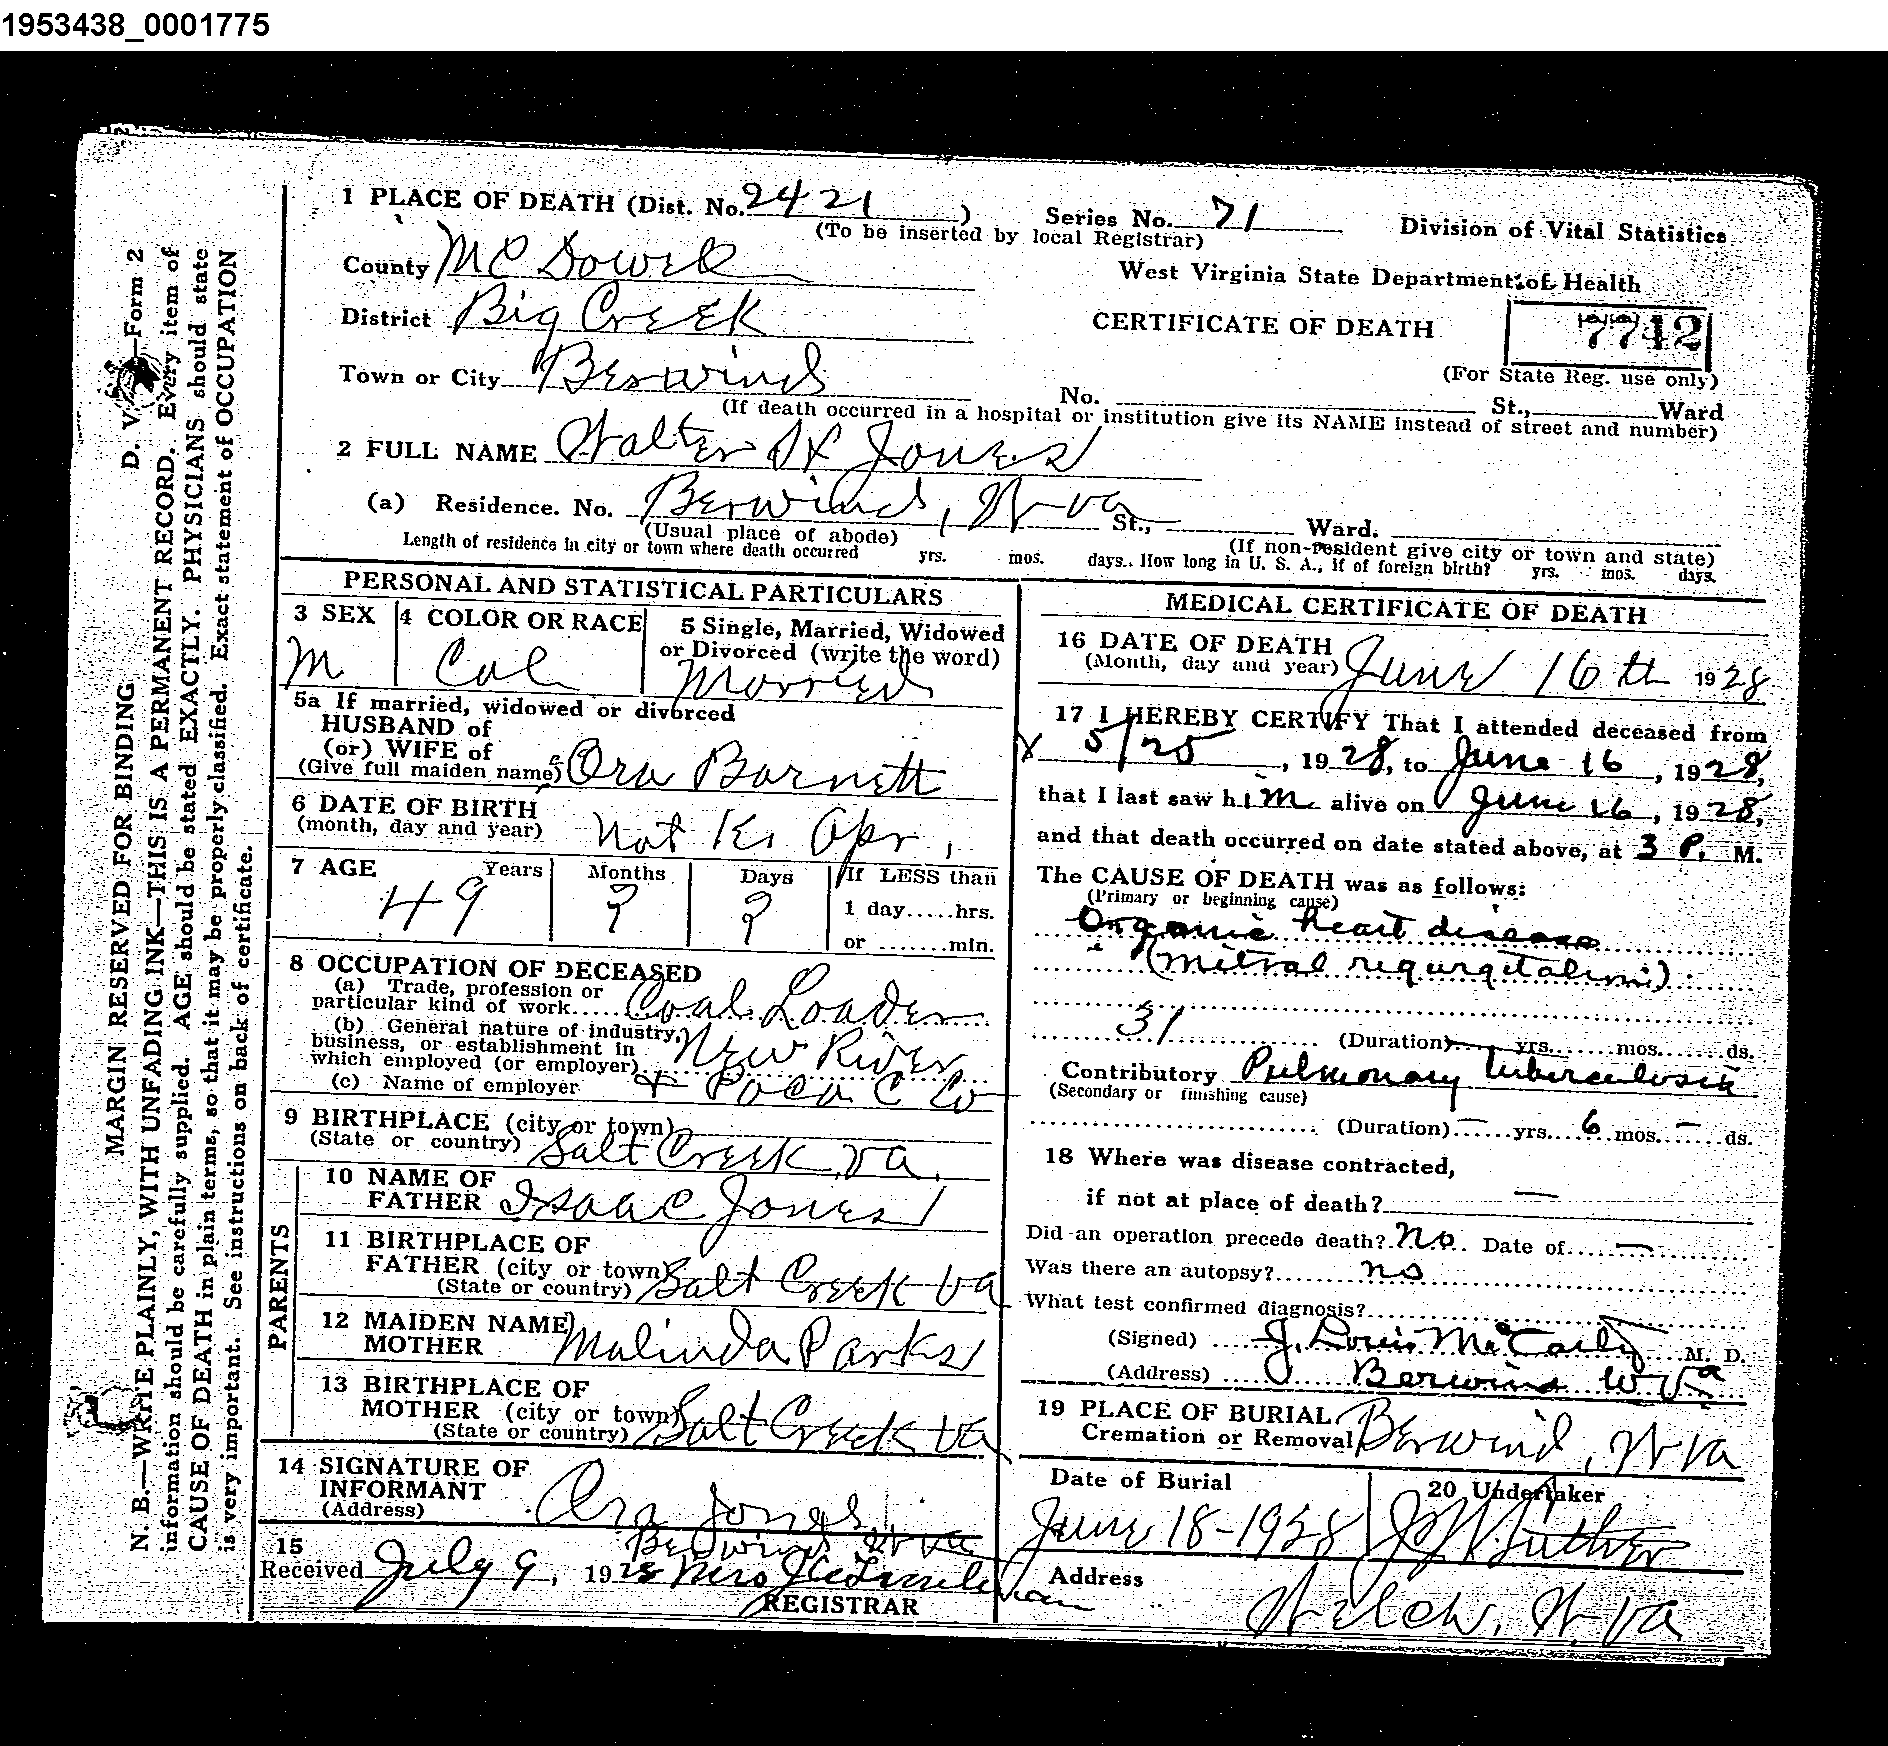 1953438_0001775
1 PLACE OF DEATH (Dist. No. 2421) Series No. 71 Division of Vital Statistics
(To be inserted by local Registrar)
County McDowell West Virginia State Department of Health
District Big Creek CERTIFICATE OF DEATH 7742
Town or City Berwind (For State Reg. use only)
No. St., Ward
(If death occurred in a hospital or institution give its NAME instead of street and number)
2 FULL NAME Walter H Jones
(a) Residence. No. Berwind, W Va St., Ward.
(Usual place of abode) (If non-resident give city or town and state)
Length of residence in city or town where death occurred yrs. mos. days. How long in U. S. A., if of foreign birth? yrs. mos. days.
PERSONAL AND STATISTICAL PARTICULARS
3 SEX 4 COLOR OR RACE 5 Single, Married, Widowed
or Divorced (write the word)
M Col Married
5a If married, widowed or divorced
HUSBAND of
(or) WIFE of
(Give full maiden name) Ora Barnett
6 DATE OF BIRTH
(month, day and year) Not Kn Apr,
7 AGE Years Months Days If LESS than
49 ? ? 1 day.....hrs.
or .......min.
8 OCCUPATION OF DECEASED
(a) Trade, profession or
particular kind of work..... Coal Loader
(b) General nature of industry,
business, or establishment in
which employed (or employer) New River
(c) Name of employer + Poca C Co
9 BIRTHPLACE (city or town)
(State or country) Salt Creek, Va.
PARENTS
10 NAME OF
FATHER Isaac Jones
11 BIRTHPLACE OF
FATHER (city or town)
(State or country) Salt Creek Va
12 MAIDEN NAME
MOTHER Malinda Parks
13 BIRTHPLACE OF
MOTHER (city or town)
(State or country) Salt Creek Va
14 SIGNATURE OF
INFORMANT
(Address) Ora Jones
Berwind W Va
15
Received July 9, 1928 Mrs
REGISTRAR
MEDICAL CERTIFICATE OF DEATH
16 DATE OF DEATH
(Month, day and year) June 16th 1928
17 I HEREBY CERTIFY That I attended deceased from
x 5/25, 1928, to June 16, 1928,
that I last saw him alive on June 16, 1928,
and that death occurred on date stated above, at 3 P. M.
The CAUSE OF DEATH was as follows:
(Primary or beginning cause)
Organic heart disease
(mitral regurgitation)
31 (Duration) yrs.......mos.......ds.
Contributory Pulmonary tuberculosis
(Secondary or finishing cause)
(Duration) — yrs. 6 mos. — ds.
18 Where was disease contracted,
if not at place of death? —
Did an operation precede death? No. Date of..... —
Was there an autopsy? no
What test confirmed diagnosis?
(Signed) J. Louis McCarty M. D.
(Address) Berwind W Va
19 PLACE OF BURIAL
Cremation or Removal Berwind, W Va
Date of Burial 20 Undertaker
June 18-1928
Address
Welch, W. Va
D. V. —Form 2
MARGIN RESERVED FOR BINDING
N. B.—WRITE PLAINLY, WITH UNFADING INK—THIS IS A PERMANENT RECORD. Every item of
information should be carefully supplied. AGE should be stated EXACTLY. PHYSICIANS should state
CAUSE OF DEATH in plain terms, so that it may be properly classified. Exact statement of OCCUPATION
is very important. See instructions on back of certificate.